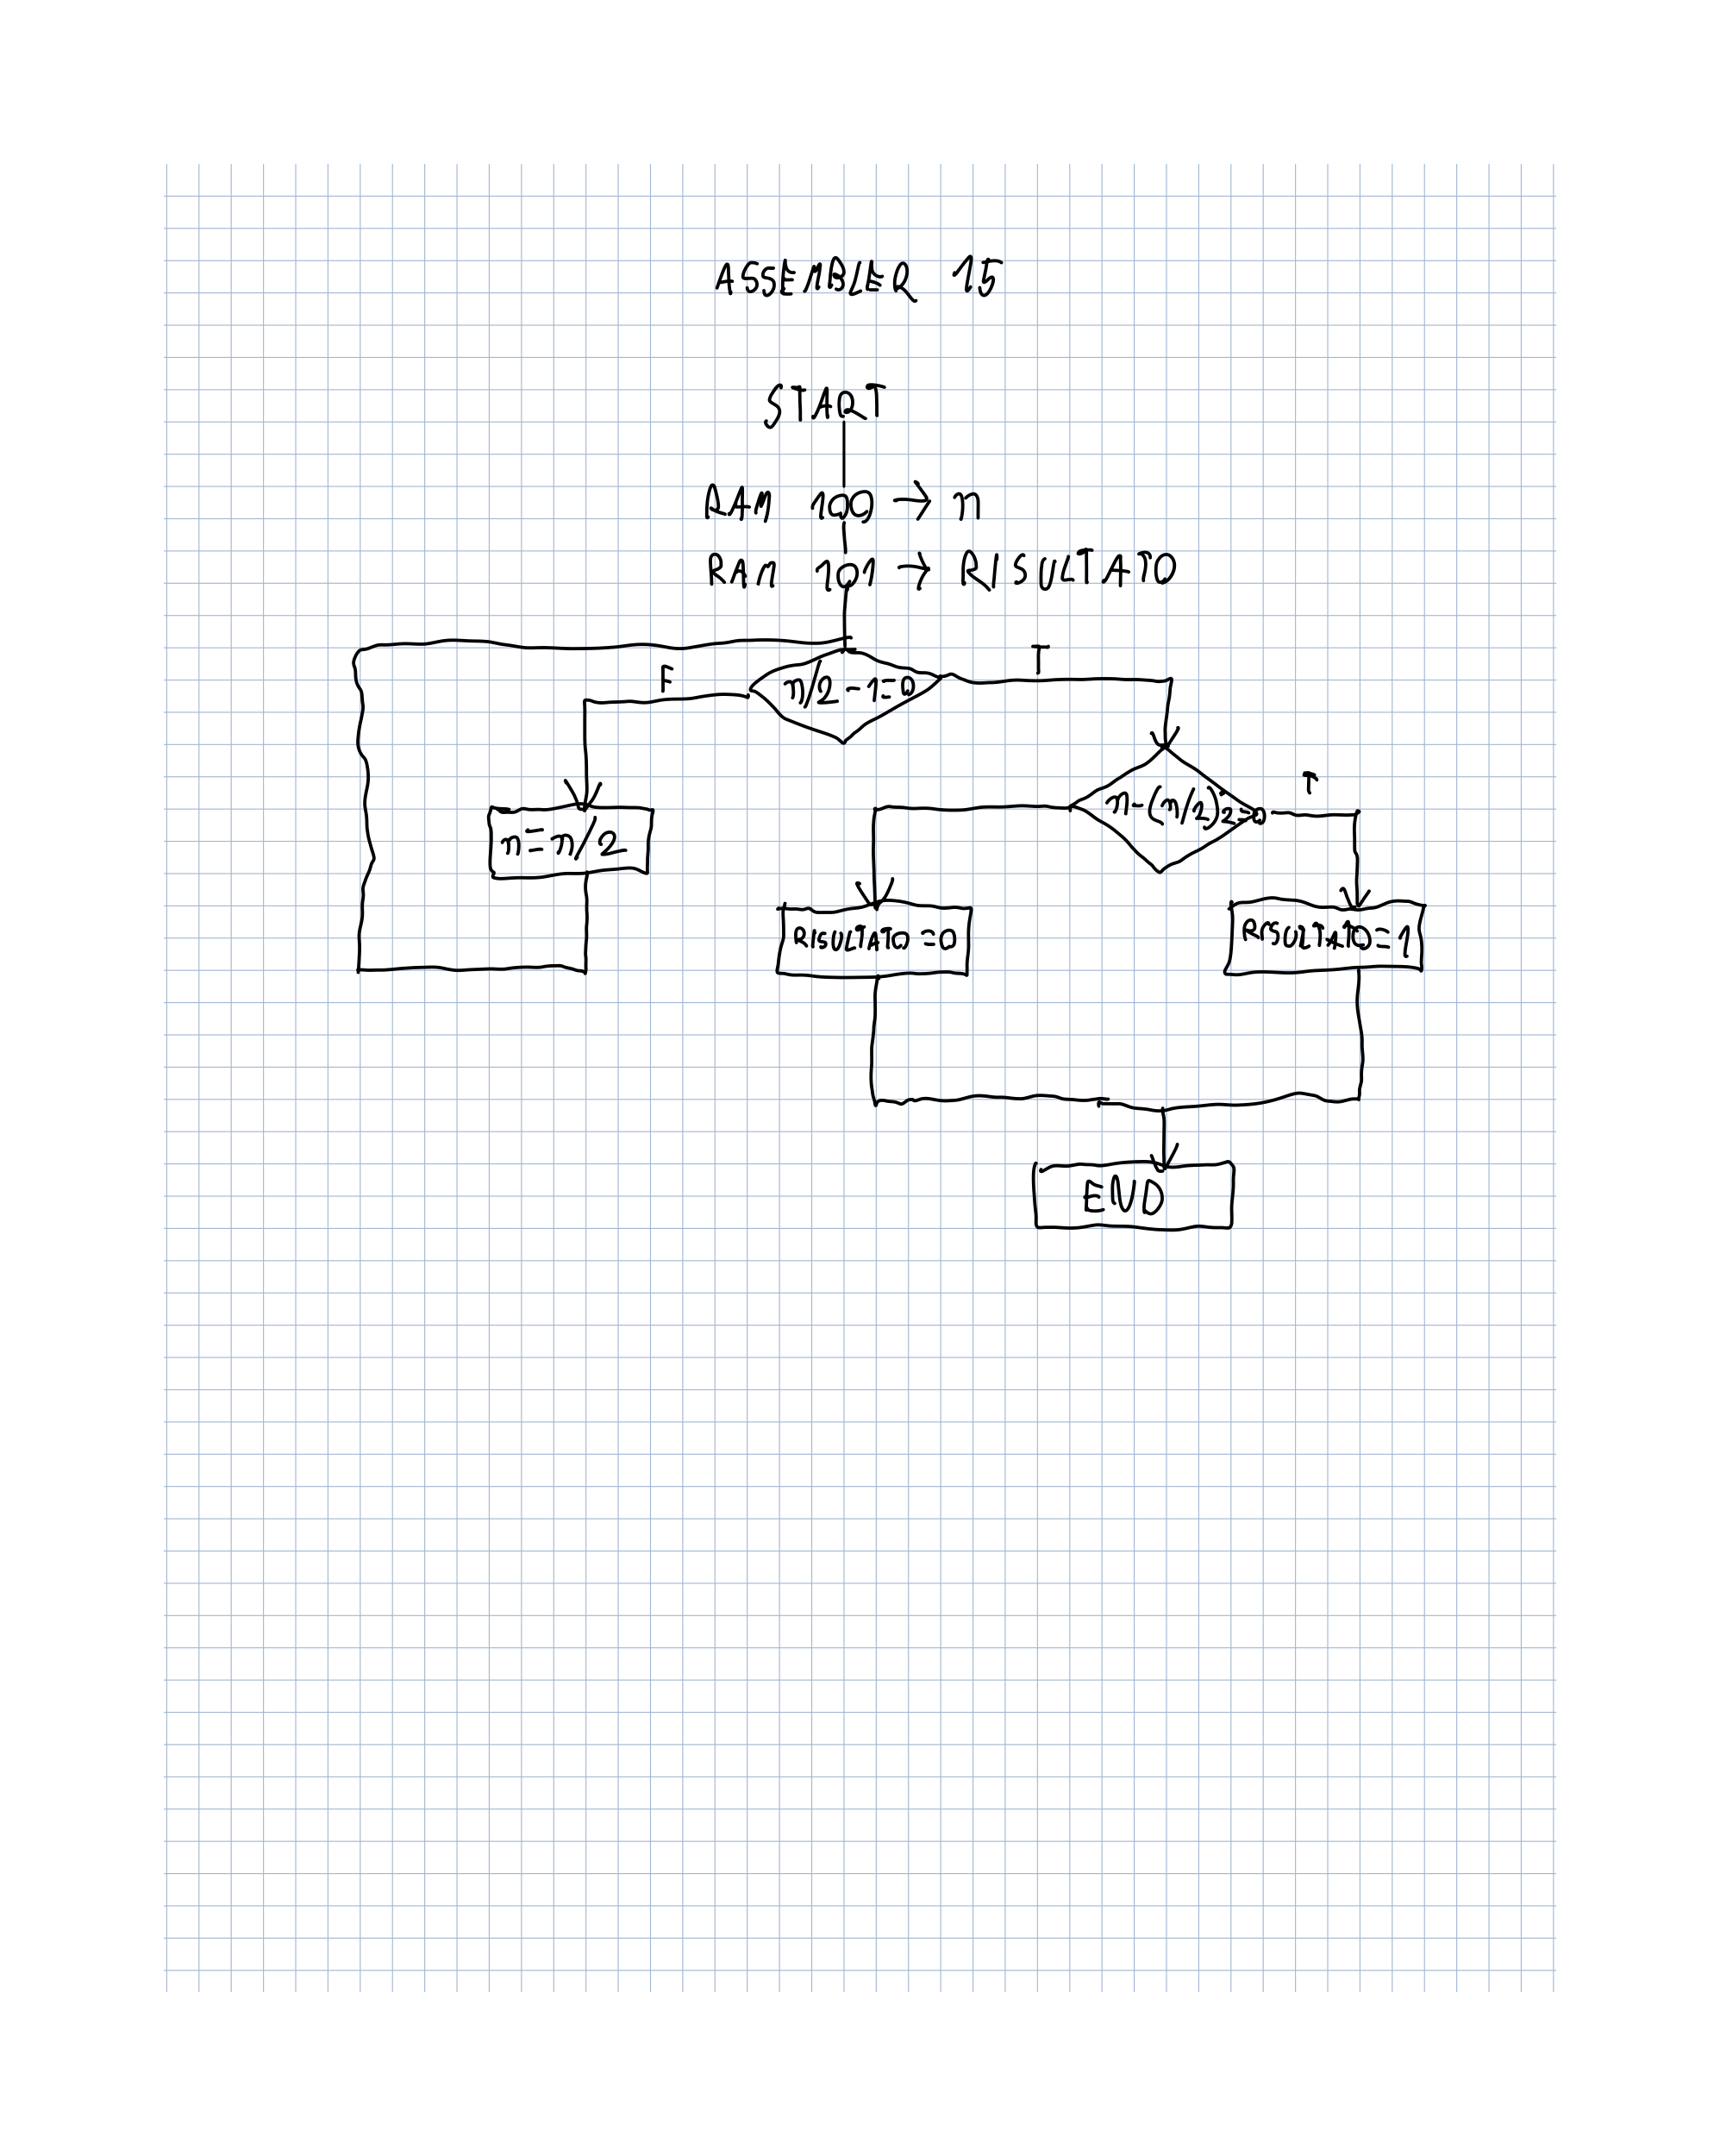 ASSEMBLER 15
START
RAM 100 → n
RAM 101 → RISULTATO
T
F
n/2-1=0
T
n-(n/2)2=0
n=n/2
RISULTATO=0
RISULTATO=1
END